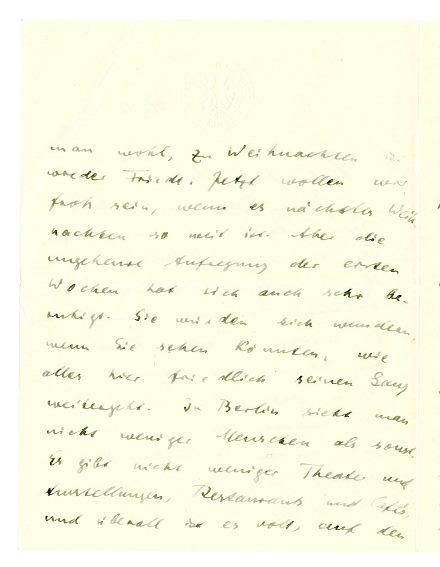 man wohl, zu Weihnachten
wieder Friede. Jetzt wollen wir
froh sein, wenn es nächster Weih
nachten so weit ist. Aber die
ungeheure Aufregung der ersten
Wochen hat sich auch sehr be-
ruhigt. Sie würden sich wundern,
wenn Sie sehen könnten, wie
alles hier friedlich seinen Gang
weitergeht. In Berlin sieht man
nicht weniger Menschen als sonst.
Es gibt nicht weniger Theater und
Ausstellungen, Restaurants und Cafés,
und überall ist es voll, auf den